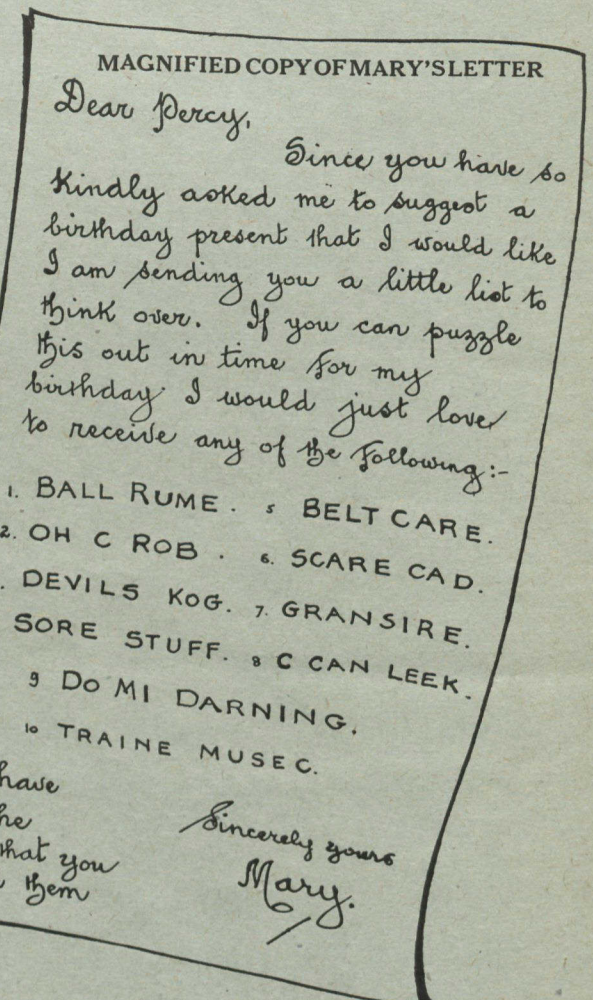 MAGNIFIED COPY OF MARY'S LETTER
Dear Percy,
Since you have so
Kindly asked me to suggest a
birthday present that I would like
I am sending you a little list to
think over. If you can puzzle
this out in time for my
birthday I would just love
to receive any of the following:-
1. BALL RUME. 5 BELT CARE.
2. OH C ROB. 6. SCARE CAD.
. DEVILS KOG. 7. GRANSIRE.
SORE STUFF. 8 C CAN LEEK.
9 DO MI DARNING.
10 TRAINE MUSEC.
have
he
hat you
them
Sincerely yours
Mary.